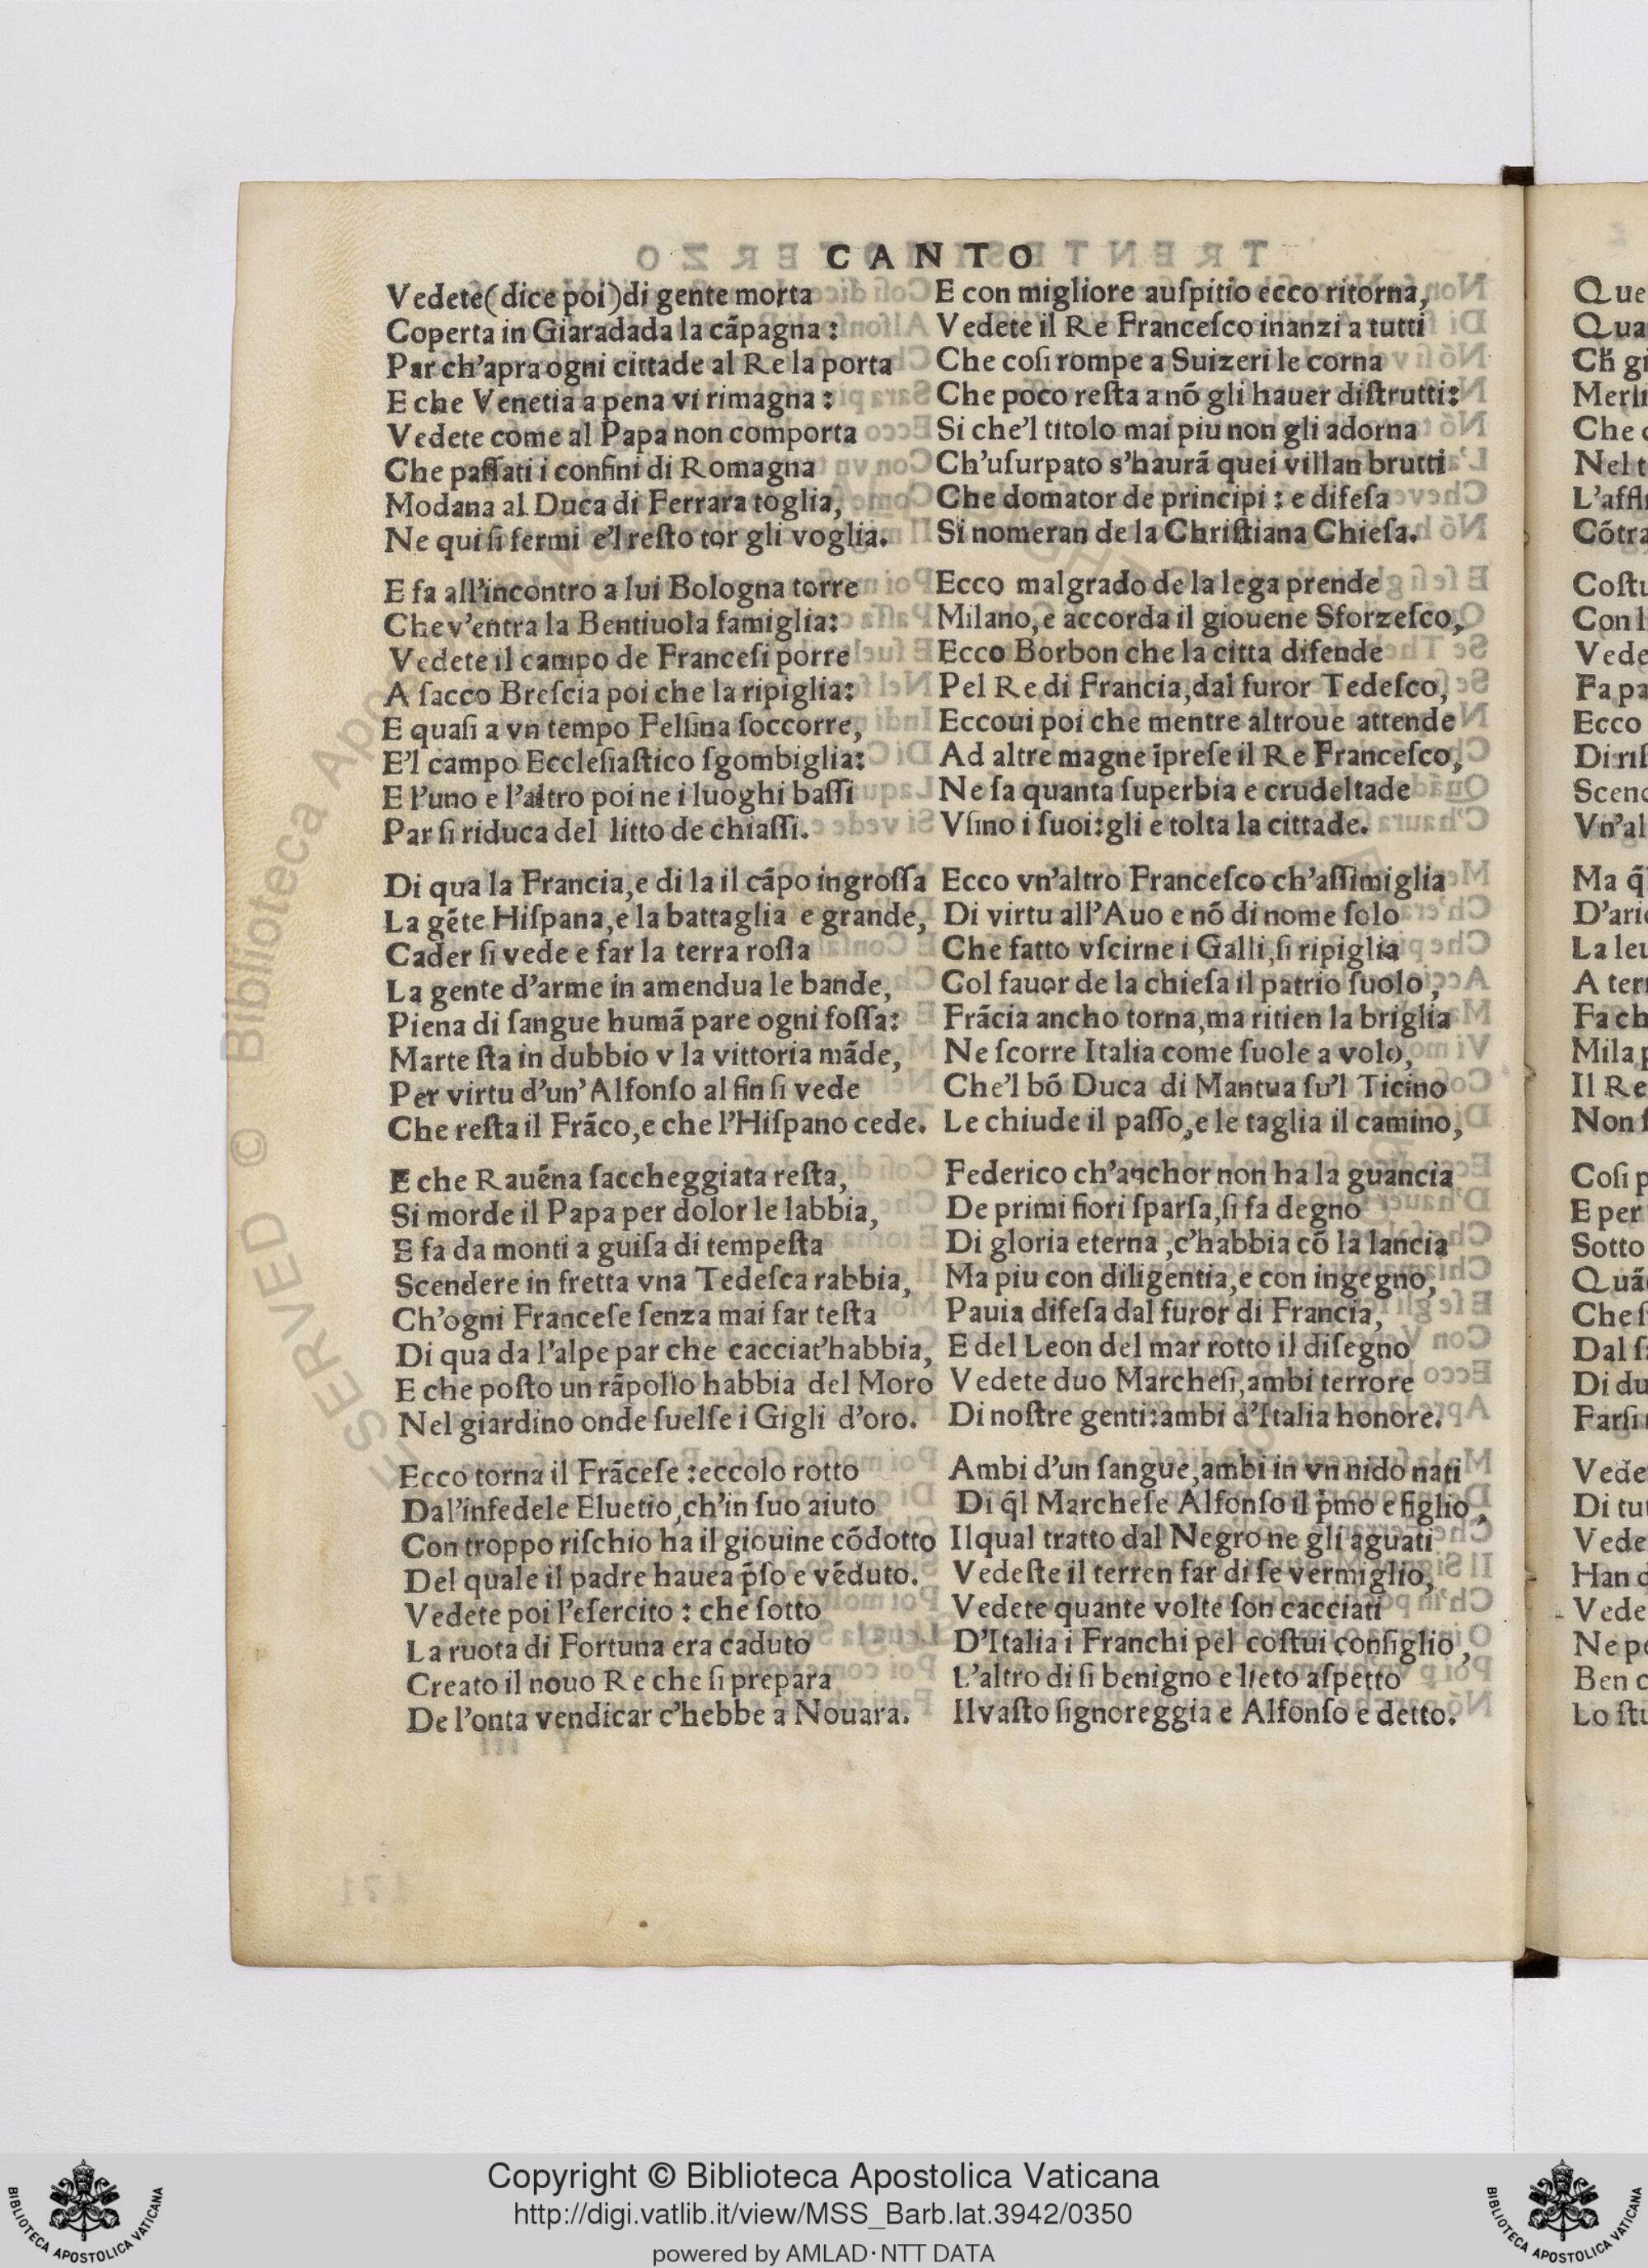 CANTO
Vedete(dice poi)di gente morta
Coperta in Giaradada la cãpagna :
Par ch'apra ogni cittade al Re la porta
E che Venetia a pena vi rimagna :
Vedete come al Papa non comporta
Che paſſati i confini di Romagna
Modana al Duca di Ferrara toglia,
Ne qui ſi fermi e'l reſto tor gli voglia.
E fa all'incontro a lui Bologna torre
Che v'entra la Bentiuola famiglia:
Vedete il campo de Franceſi porre
A ſacco Breſcia poi che la ripiglia:
E quaſi a vn tempo Felſina ſoccorre,
E'l campo Eccleſiaſtico ſgombiglia:
E l'uno e l'altro poi ne i luoghi baſſi
Par ſi riduca del litto de chiaſſi.
Di qua la Francia,e di la il cãpo ingroſſa
La gẽte Hiſpana,e la battaglia e grande,
Cader ſi vede e far la terra roſſa
La gente d'arme in amendua le bande,
Piena di ſangue humã pare ogni foſſa:
Marte ſta in dubbio v la vittoria mãde,
Per virtu d'un'Alfonſo al fin ſi vede
Che reſta il Frãco,e che l'Hiſpano cede.
E che Rauẽna ſaccheggiata reſta,
Si morde il Papa per dolor le labbia,
E fa da monti a guiſa di tempeſta
Scendere in fretta vna Tedeſca rabbia,
Ch'ogni Franceſe ſenza mai far teſta
Di qua da l'alpe par che cacciat'habbia,
E che poſto un rãpollo habbia del Moro
Nel giardino onde ſuelſe i Gigli d'oro.
Ecco torna il Frãceſe :eccolo rotto
Dal'infedele Eluetio,ch'in ſuo aiuto
Con troppo riſchio ha il giouine cõdotto
Del quale il padre hauea p̃ſo e vẽduto.
Vedete poi l'eſercito : che ſotto
La ruota di Fortuna era caduto
Creato il nouo Re che ſi prepara
De l'onta vendicar c'hebbe a Nouara.
E con migliore auſpitio ecco ritorna,
Vedete il Re Franceſco inanzi a tutti
Che coſi rompe a Suizeri le corna
Che poco reſta a nõ gli hauer diſtrutti:
Si che'l titolo mai piu non gli adorna
Ch'uſurpato s'haurã quei villan brutti
Che domator de principi : e difeſa
Si nomeran de la Chriſtiana Chieſa.
Ecco malgrado de la lega prende
Milano,e accorda il giouene Sforzeſco,
Ecco Borbon che la citta difende
Pel Re di Francia,dal furor Tedeſco,
Eccoui poi che mentre altroue attende
Ad altre magne ĩpreſe il Re Franceſco,
Ne ſa quanta ſuperbia e crudeltade
Vſino i ſuoi:gli e tolta la cittade.
Ecco vn'altro Franceſco ch'aſſimiglia
Di virtu all'Auo e nõ di nome ſolo
Che fatto vſcirne i Galli,ſi ripiglia
Col fauor de la chieſa il patrio ſuolo ,
Frãcia ancho torna,ma ritien la briglia
Ne ſcorre Italia come ſuole a volo,
Che'l bõ Duca di Mantua ſu'l Ticino
Le chiude il paſſo,e le taglia il camino,
Federico ch'anchor non ha la guancia
De primi fiori ſparſa,ſi fa degno
Di gloria eterna ,c'habbia cõ la lancia
Ma piu con diligentia,e con ingegno,
Pauia difeſa dal furor di Francia,
E del Leon del mar rotto il diſegno
Vedete duo Marcheſi,ambi terrore
Di noſtre genti:ambi d'Italia honore.
Ambi d'un ſangue,ambi in vn nido nati
Di q̃l Marcheſe Alfonſo il p̃mo e figlio,
Ilqual tratto dal Negro ne gli aguati
Vedeſte il terren far di ſe vermiglio,
Vedete quante volte ſon cacciati
D'Italia i Franchi pel coſtui conſiglio,
L'altro di ſi benigno e lieto aſpetto
Il vaſto ſignoreggia e Alfonſo e detto.
Que
Qua
Ch̃ gi
Merli
Che
Nel t
L'affl
Cõtra
Coſtu
Con l
Vede
Fa pa
Ecco
Di riſ
Scend
Vn'al
Ma q̃
D'ari
La leu
A ter
Fa ch
Mila p
Il Re
Non ſ
Coſi p
E per
Sotto
Quã
Che ſ
Dal ſ
Di du
Farſi
Vede
Di tut
Vede
Han
Vede
Ne p
Ben c
Lo ſtu
RESERVED © Biblioteca Apo
Copyright © Biblioteca Apostolica Vaticana
http://digi.vatlib.it/view/MSS_Barb.lat.3942/0350
powered by AMLAD·NTT DATA
BIBLIOTECA APOSTOLICA VATICANA
BIBLIOTECA APOSTOLICA VATICANA